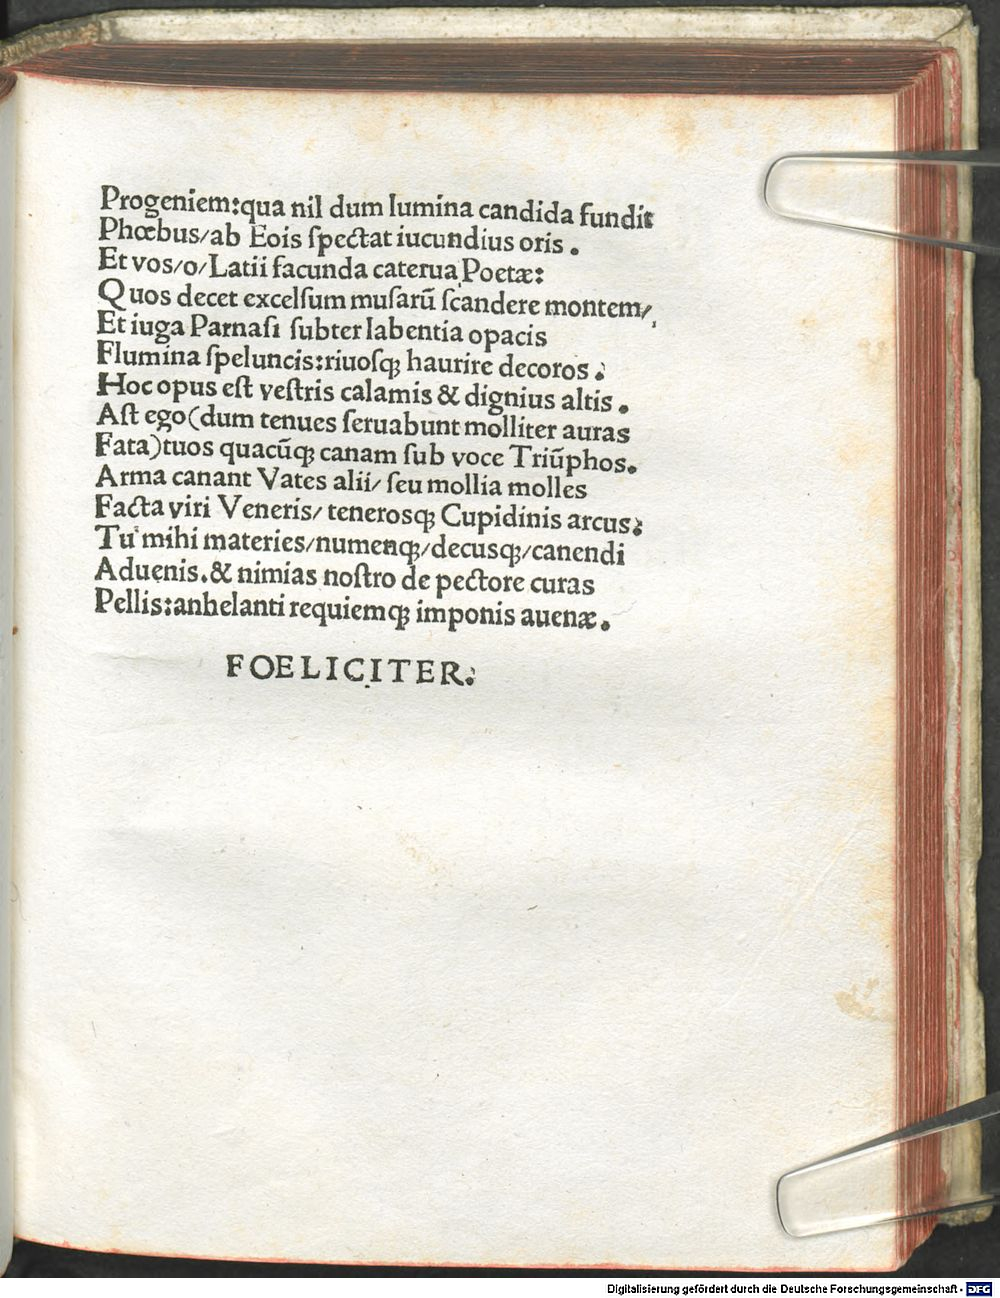 Progeniem:qua nil dum lumina candida fundit
Phœbus/ab Eois ſpectat iucundius oris .
Et vos/o/Latii facunda caterua Poetæ:
Quos decet excelſum muſarū ſcandere montem/
Et iuga Parnaſi ſubter labentia opacis
Flumina ſpeluncis:riuoſqꝫ haurire decoros .
Hoc opus eſt veſtris calamis & dignius altis .
Aſt ego(dum tenues ſeruabunt molliter auras
Fata)tuos quacūqꝫ canam ſub voce Triūphos.
Arma canant Vates alii/ ſeu mollia molles
Facta viri Veneris/ teneroſqꝫ Cupidinis arcus.
Tu mihi materies/numenqꝫ/decuſqꝫ/canendi
Aduenis.& nimias noſtro de pectore curas
Pellis:anhelanti requiemqꝫ imponis auenæ .
FOELICITER.
Digitalisierung gefördert durch die Deutsche Forschungsgemeinschaft - DFG